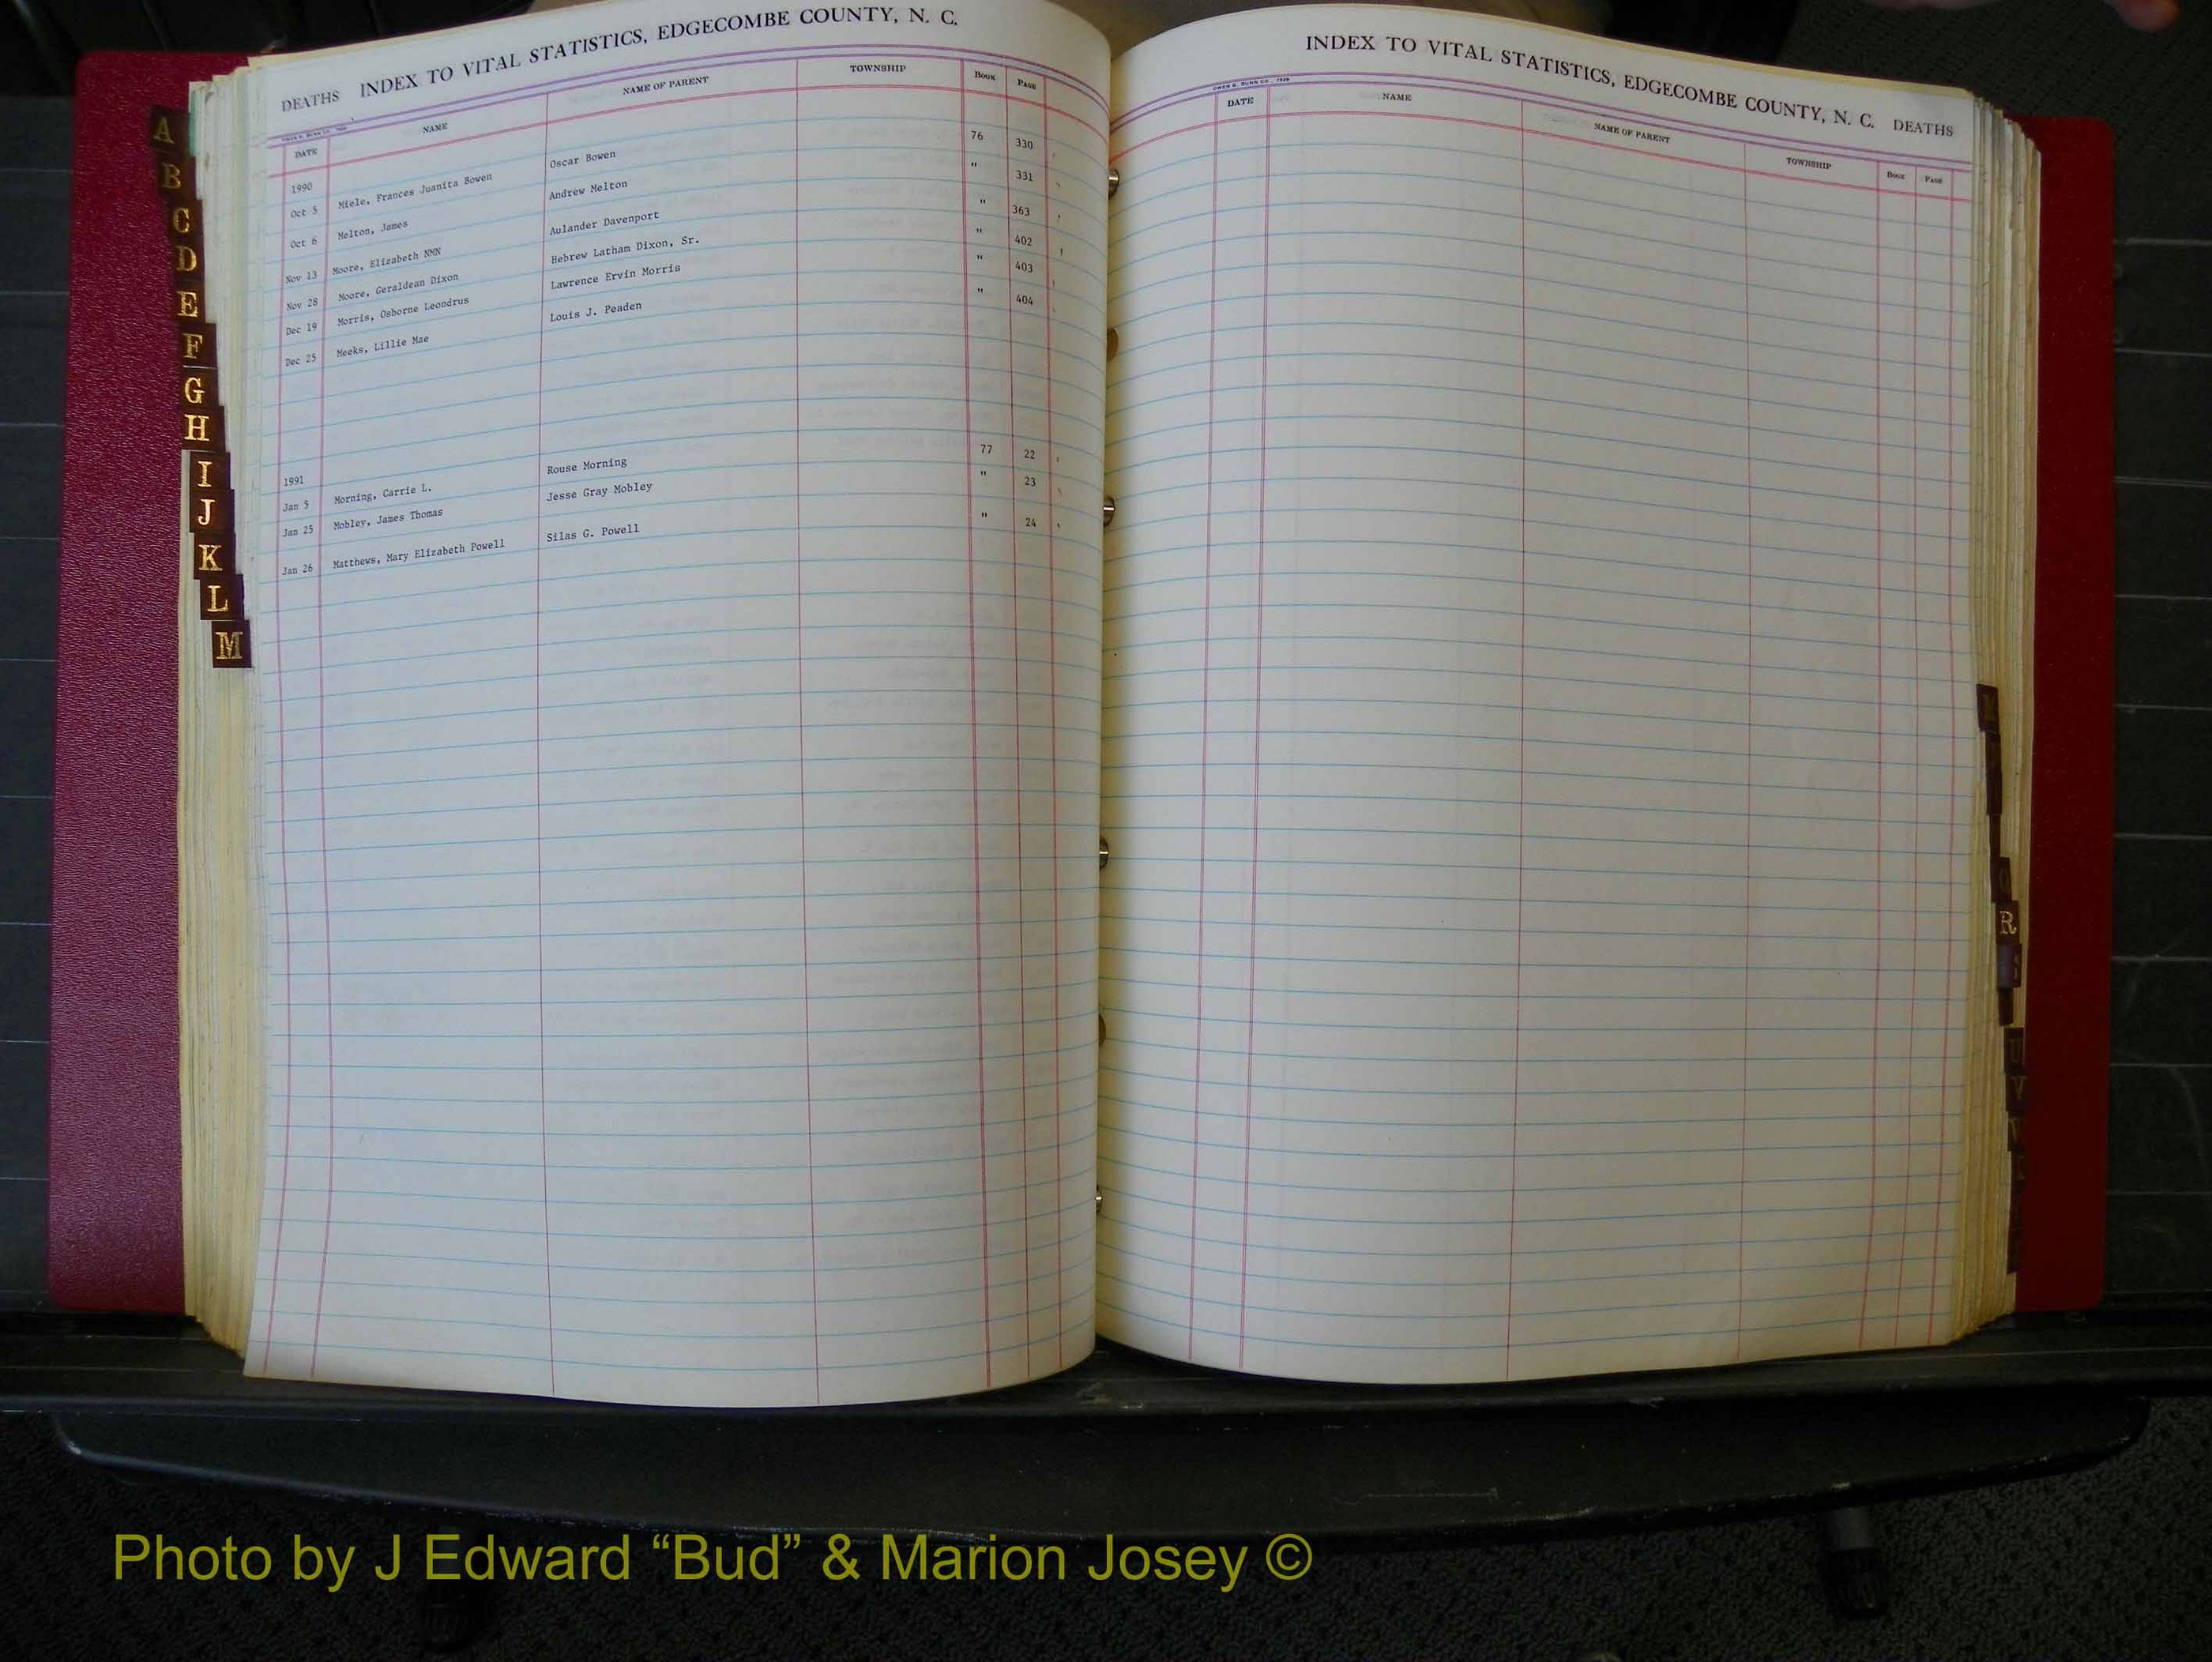 DEATHS INDEX TO VITAL STATISTICS, EDGECOMBE COUNTY, N. C.
DATE NAME NAME OF PARENT TOWNSHIP BOOK PAGE
1990
Oct 5 Miele, Frances Juanita Bowen Oscar Bowen 76 330
Oct 6 Melton, James Andrew Melton " 331
Nov 13 Moore, Elizabeth NMN Aulander Davenport " 363
Nov 28 Moore, Geraldean Dixon Hebrew Latham Dixon, Sr. " 402
Dec 19 Morris, Osborne Leondrus Lawrence Ervin Morris " 403
Dec 25 Meeks, Lillie Mae Louis J. Peaden " 404
1991
Jan 5 Morning, Carrie L. Rouse Morning 77 22
Jan 25 Mobley, James Thomas Jesse Gray Mobley " 23
Jan 26 Matthews, Mary Elizabeth Powell Silas G. Powell " 24
A
B
C
D
E
F
G
H
I
J
K
L
M
INDEX TO VITAL STATISTICS, EDGECOMBE COUNTY, N. C. DEATHS
DATE NAME NAME OF PARENT TOWNSHIP BOOK PAGE
R
S
U
V
Photo by J Edward “Bud” & Marion Josey ©